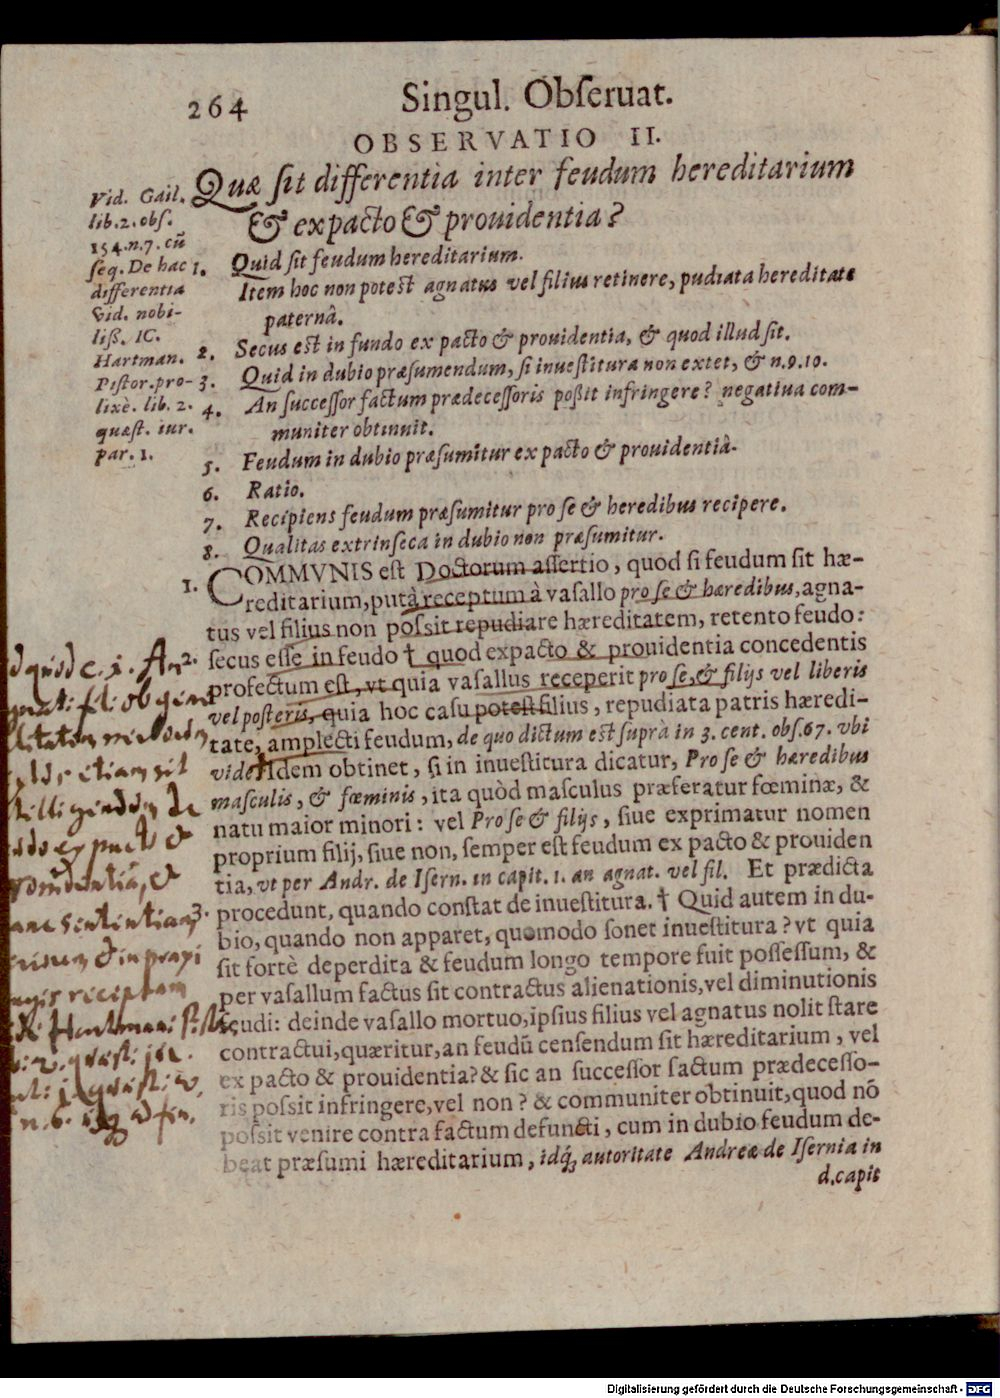 264
Singul. Obſeruat.
OBSERVATIO II.
Quæ ſit differentia inter feudum hereditarium
& ex pacto & prouidentia?
Vid. Gail.
lib. 2. obſ.
154. n. 7. cũ
ſeq. De hac
differentia
Vid. nobi-
liſſ. IC.
Hartman.
Piſtor. pro-
lixè. lib. 2.
quæſt. iur.
par. 1.
1. Quid ſit feudum hereditarium.
Item hoc non poteſt agnatus vel filius retinere, pudiata hereditate
paternâ.
2. Secus eſt in fundo ex pacto & prouidentia, & quod illud ſit.
3. Quid in dubio præſumendum, ſi inueſtitura non extet, & n. 9. 10.
4. An ſucceſſor factum prædeceſſoris poßit infringere? negatiua com-
muniter obtinuit.
5. Feudum in dubio præſumitur ex pacto & prouidentiâ.
6. Ratio.
7. Recipiens feudum præſumitur pro ſe & heredibus recipere.
8. Qualitas extrinſeca in dubio non præſumitur.
1. COMMVNIS eſt Doctorum aſſertio, quod ſi feudum ſit hæ-
reditarium, putà receptum à vaſallo pro ſe & hæredibus, agna-
tus vel filius non poſsit repudiare hæreditatem, retento feudo:
2. ſecus eſſe in feudo † quod ex pacto & prouidentia concedentis
profectum eſt, vt quia vaſallus receperit pro ſe, & filijs vel liberis
vel poſteris, quia hoc caſu poteſt filius, repudiata patris hæredi-
tate, amplecti feudum, de quo dictum eſt ſuprà in 3. cent. obſ. 67. vbi
vide. Idem obtinet, ſi in inueſtitura dicatur, Pro ſe & hæredibus
maſculis, & fœminis, ita quòd maſculus præferatur fœminæ, &
natu maior minori: vel Pro ſe & filijs, ſiue exprimatur nomen
proprium filij, ſiue non, ſemper eſt feudum ex pacto & prouiden
tia, vt per Andr. de Iſern. in capit. 1. an agnat. vel fil. Et prædicta
3. procedunt, quando conſtat de inueſtitura. † Quid autem in du-
bio, quando non apparet, quomodo ſonet inueſtitura? vt quia
ſit fortè deperdita & feudum longo tempore fuit poſſeſſum, &
per vaſallum factus ſit contractus alienationis, vel diminutionis
feudi: deinde vaſallo mortuo, ipſius filius vel agnatus nolit ſtare
contractui, quæritur, an feudũ cenſendum ſit hæreditarium, vel
ex pacto & prouidentia? & ſic an ſucceſſor factum prædeceſſo-
ris poſsit infringere, vel non? & communiter obtinuit, quod nõ
poſsit venire contra factum defuncti, cum in dubio feudum de-
beat præſumi hæreditarium, idq́ꝫ autoritate Andreæ de Iſernia in
d. capit
Digitalisierung gefördert durch die Deutsche Forschungsgemeinschaft - DFG